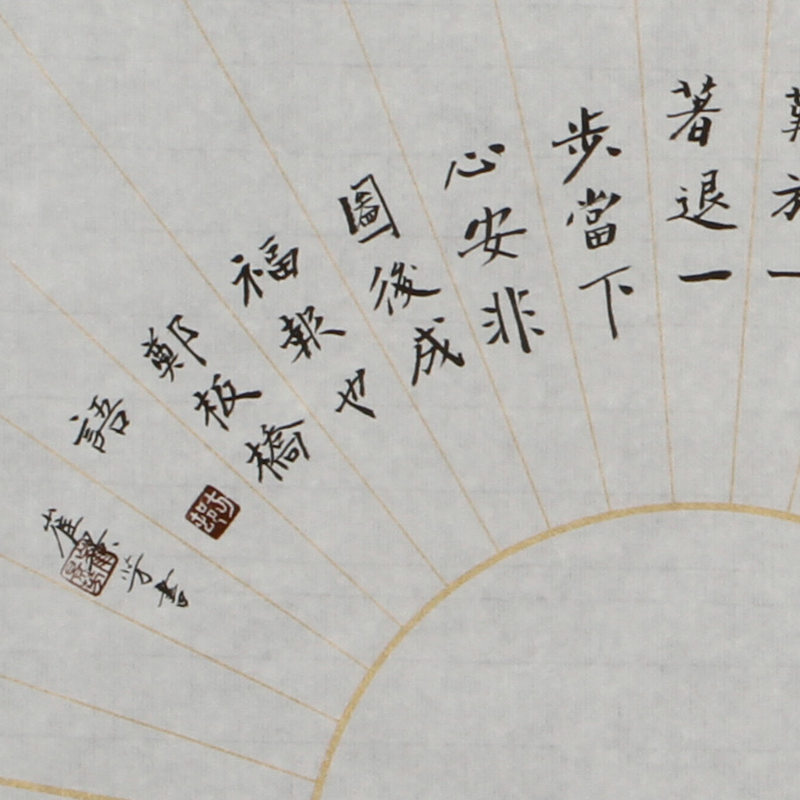 一
著退一
步當下
心安非
圖後成
福報也
鄭板橋
語